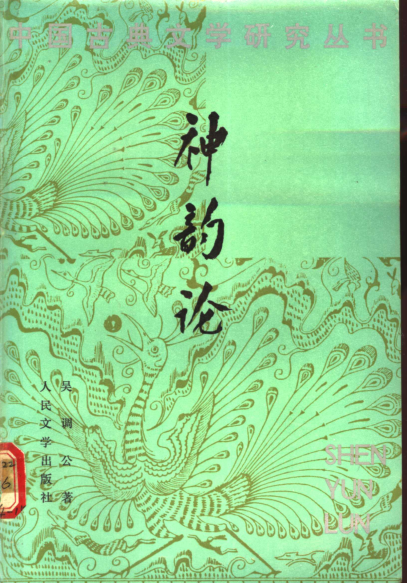 中国古典文学研究丛书
神韵论
吴调公著
人民文学出版社
SHEN
YUN
LUN
22
6